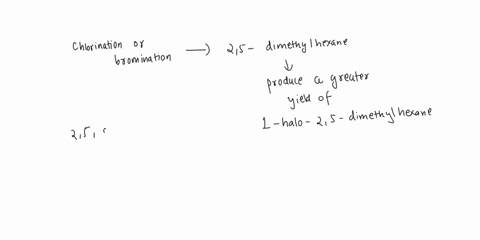 Chlorination or
bromination → 2,5 - dimethylhexane
↓
produce a greater
yield of
1 - halo - 2,5 - dimethylhexane
2,5,